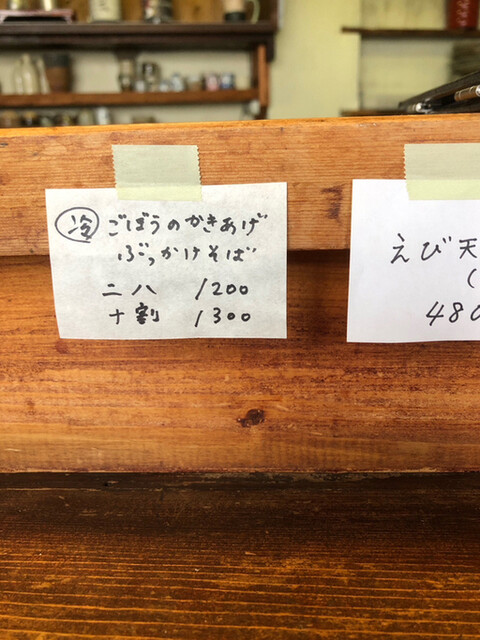 冷 ごぼうのかきあげ
ぶっかけそば
二八 1200
十割 1300
えび天
(
480